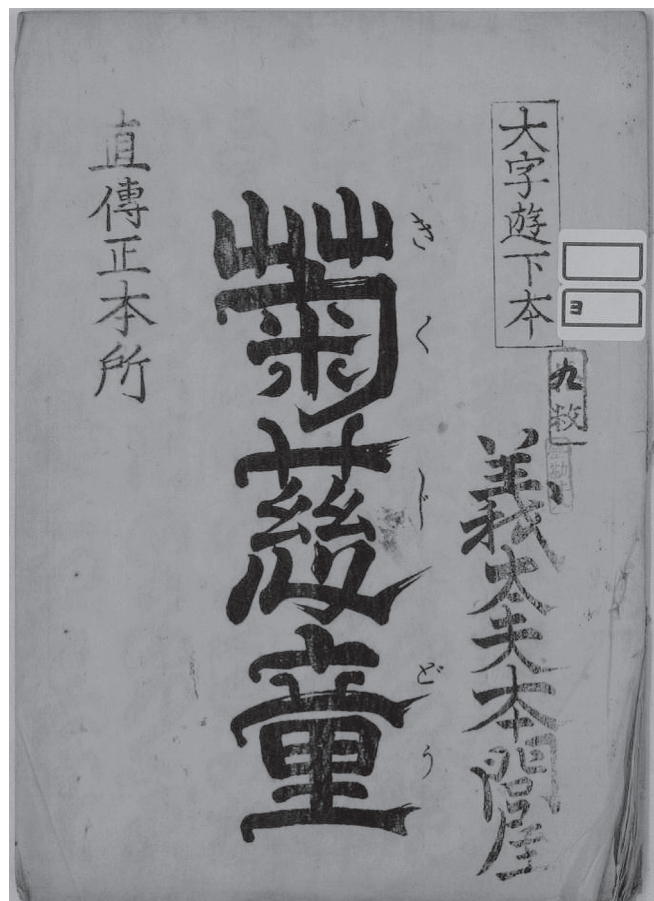 大字遊下本
ヨ
九枚
義太夫本問屋
菊慈童
きくじどう
直傳正本所